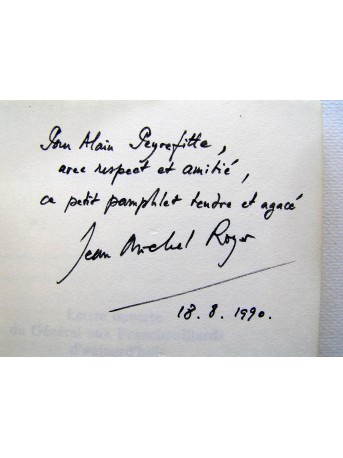 Pour Alain Peyrefitte,
avec respect et amitié,
ce petit pamphlet tendre et agacé
Jean Michel Royer
18.8.1990.
Lettre ouverte
du Général aux Franchouillards
d'aujourd'hui